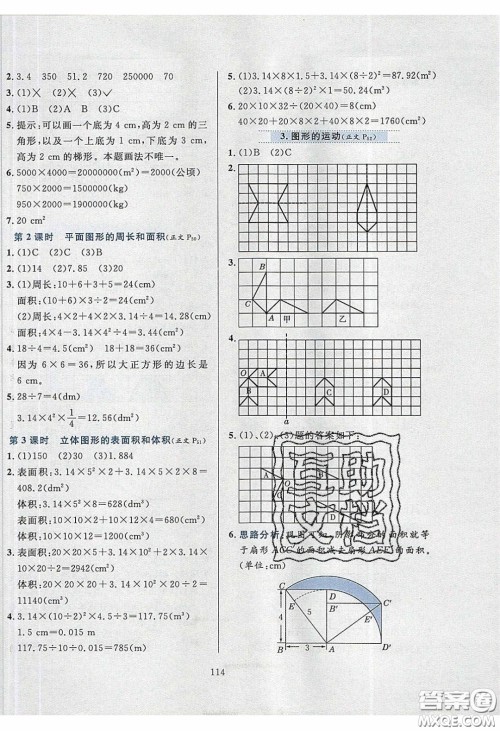 2. 3.4 350 51.2 720 250000 70
3. (1)× (2)× (3)✓
4. (1)B (2)B (3)C
5. 提示:可以画一个底为 4 cm,高为 2 cm 的三
角形,以及一个上底为 1 cm,下底为 3 cm,
高为 2 cm 的梯形。本题画法不唯一。
6. 5000×4000=20000000(m²)=2000(公顷)
750×2000=1500000(kg)
950×2000=1900000(kg)
7. 20 cm²
第 2 课时 平面图形的周长和面积(正文 P₅₀)
1. (1)C (2)C (3)B
2. (1)14 (2)7.85 (3)20
3. (1)周长:10+6+3+5=24(cm)
面积:(10+6)×3÷2=24(cm²)
(2)周长:4×2+4×2+3.14×4=28.56(cm)
面积:4×4-3.14×4²÷4=3.44(cm²)
4. 18÷4=4.5(cm) 18+18=36(cm)
因为 6×6=36,所以大正方形的边长是
6 cm。
5. 28÷7=4(dm)
3.14×4²×1/4=12.56(dm²)
第 3 课时 立体图形的表面积和体积(正文 P₅₁)
1. (1)150 (2)30 (3)1.884
2. 表面积:3.14×5²×2+3.14×5×2×8=
408.2(dm²)
体积:3.14×5²×8=628(dm³)
表面积:10×10×2+10×12×4=680(cm²)
体积:10×10×12=1200(cm³)
3. 表面积:20×20×5+3.14×20×10÷2+3.14×
10²+20×20=2942(cm²)
体积:20×20×20+3.14×10²×20÷2=
11140(cm³)
4. 3.14×(10÷2)²×4.5×1/3=117.75(m³)
1.5 cm=0.015 m
117.75÷10÷0.015=785(m)
5. (1)3.14×8×1.5+3.14×(8÷2)²=87.92(m²)
(2)3.14×(8÷2)²×1=50.24(m³)
6. 20×10×32÷(20×40)=8(cm)
40×20+20×8×2+40×8×2=1760(cm²)
3. 图形的运动(正文 P₅₂)
1. (1)B (2)C
2.
3.
B C A 甲 乙
4.
O A B a
5. (1)、(2)、(3)题的答案如下:
互助
文档
6. 思路分析:
(单位:cm)
C D C′ E B′ E′ 5 4 B 3 A D′
114
答案圈
MXQE.COM